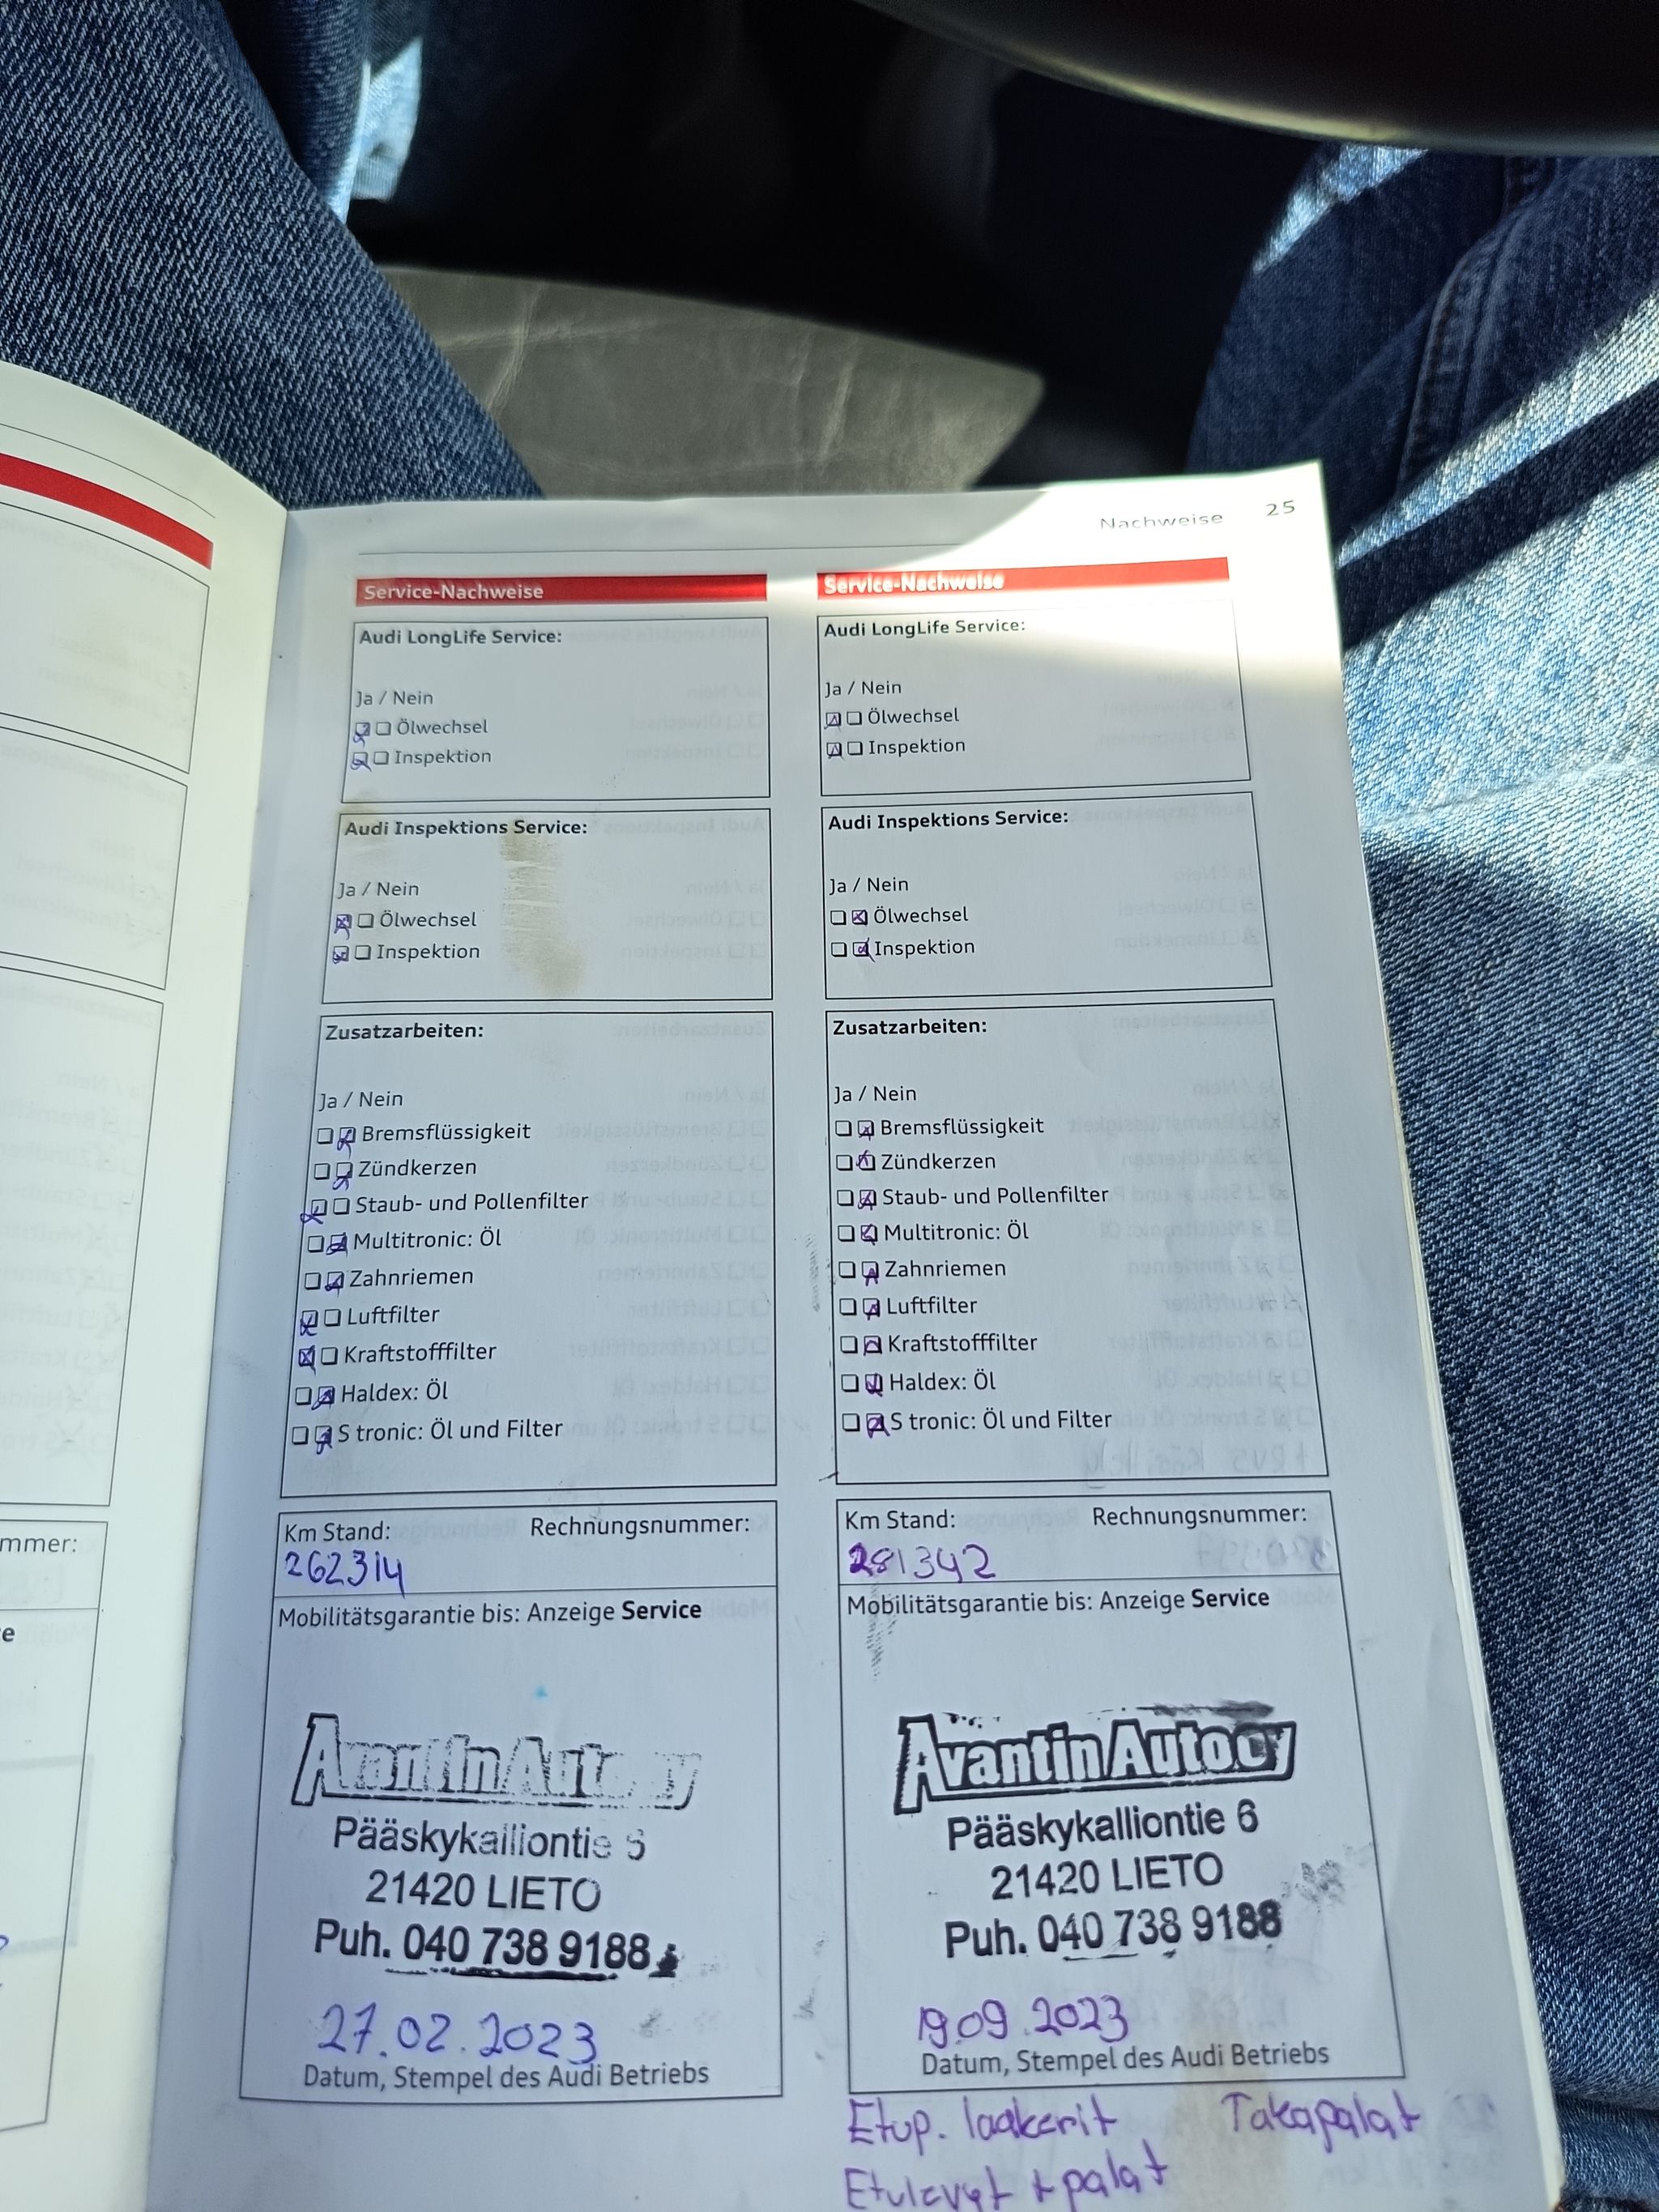 Nachweise 25
mmer:
e
Service-Nachweise
Audi LongLife Service:
Ja / Nein
Ölwechsel
Inspektion
Audi Inspektions Service:
Ja / Nein
Ölwechsel
Inspektion
Zusatzarbeiten:
Ja / Nein
Bremsflüssigkeit
Zündkerzen
Staub- und Pollenfilter
Multitronic: Öl
Zahnriemen
Luftfilter
Kraftstofffilter
Haldex: Öl
S tronic: Öl und Filter
Km Stand: Rechnungsnummer:
262314
Mobilitätsgarantie bis: Anzeige Service
Avantin Auto oy
Pääskykalliontie 6
21420 LIETO
Puh. 040 738 9188
27.02.2023
Datum, Stempel des Audi Betriebs
Service-Nachweise
Audi LongLife Service:
Ja / Nein
Ölwechsel
Inspektion
Audi Inspektions Service:
Ja / Nein
Ölwechsel
Inspektion
Zusatzarbeiten:
Ja / Nein
Bremsflüssigkeit
Zündkerzen
Staub- und Pollenfilter
Multitronic: Öl
Zahnriemen
Luftfilter
Kraftstofffilter
Haldex: Öl
S tronic: Öl und Filter
Km Stand: Rechnungsnummer:
281342
Mobilitätsgarantie bis: Anzeige Service
Avantin Auto oy
Pääskykalliontie 6
21420 LIETO
Puh. 040 738 9188
19.09.2023
Datum, Stempel des Audi Betriebs
Etup. laakerit Takapalat
Etulevyt + palat